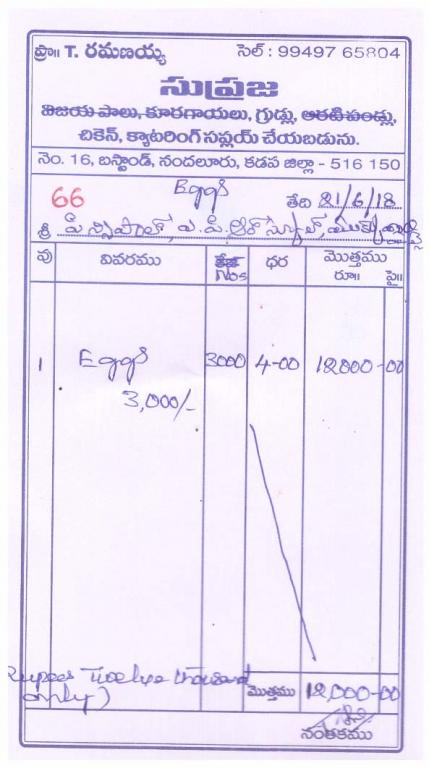 ప్రొ॥ T. రమణయ్య సెల్ : 99497 65804
సుప్రజ
విజయ పాలు, కూరగాయలు, గ్రుడ్లు, అరటి పండ్లు,
చికెన్, క్యాటరింగ్ సప్లయ్ చేయబడును.
నెం. 16, బస్టాండ్, నందలూరు, కడప జిల్లా - 516 150
Eggs
66 తేది 21/6/18
శ్రీ ప్రిన్సిపాల్, ఎ.పి.ఆర్ స్కూల్,
వు వివరము కేజి Nos ధర మొత్తము రూ॥ పై॥
1 Eggs 3000 4-00 12,000-00
3,000/-
Rupees Twelve thousand only) మొత్తము 12,000-00
సంతకము